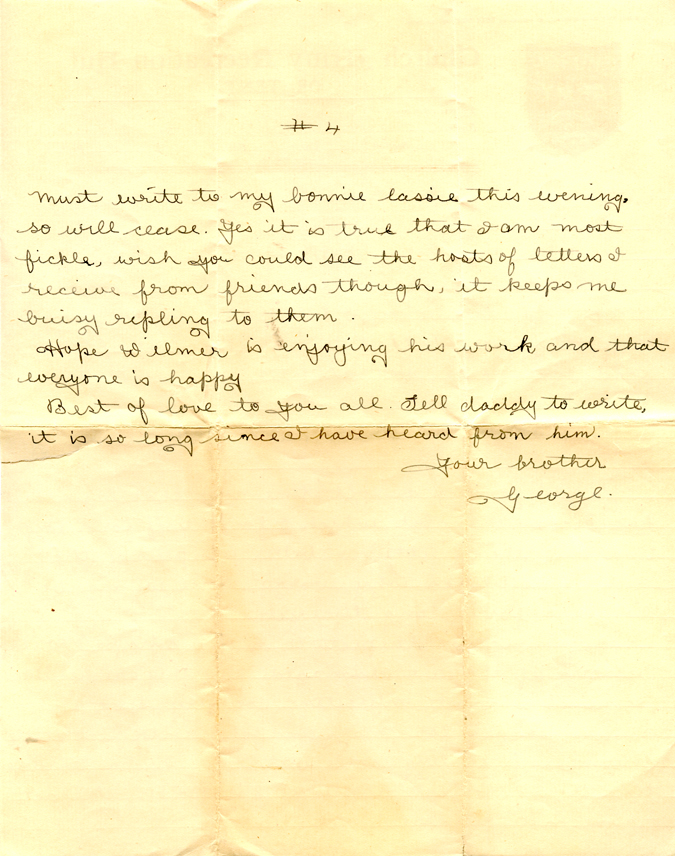 # 4
must write to my bonnie lassie this evening.
so will cease. Yes it is true that I am most
fickle, wish you could see the hosts of letters I
receive from friends though, it keeps me
buisy repling to them.
Hope Wilmer is enjoying his work and that
everyone is happy
Best of love to you all. Tell daddy to write,
it is so long since I have heard from him.
Your brother
George.